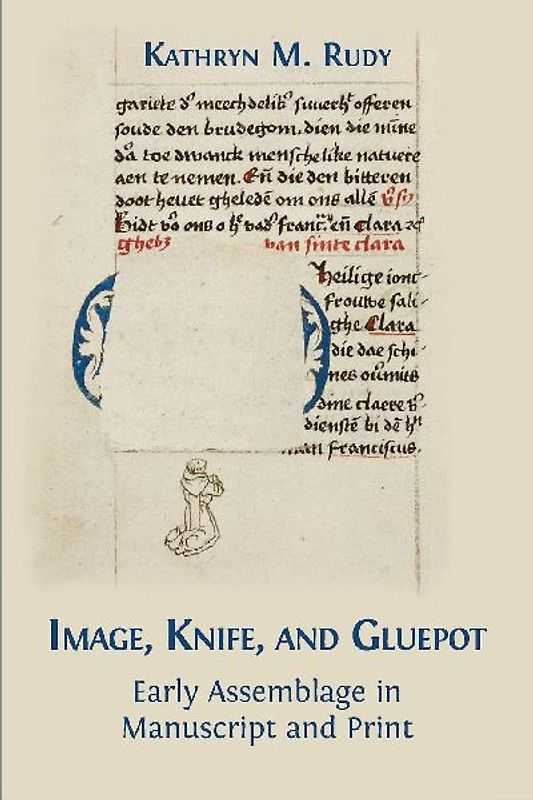 KATHRYN M. RUDY
gariete d' meechdelik' suuerh' offeren
soude den brudegom. dien die mīne
dā toe dwanck menschelike natuere
aen te nemen. Eñ die den bitteren
doot heuet gheledē om ons allē
Bidt vō ons o h' vad' franc' eñ Clara
van sinte clara
heilige ionc-
frouwe sali-
ghe Clara
die dae schi-
nes
dine claere
dienstē bi dē
franciscus.
IMAGE, KNIFE, AND GLUEPOT
Early Assemblage in
Manuscript and Print